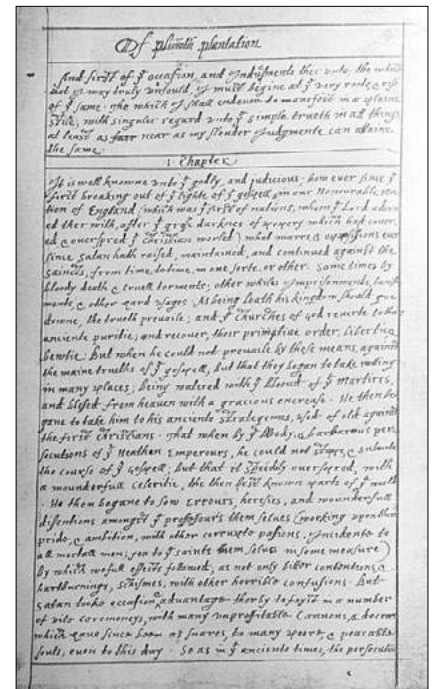 Of plimoth plantation
And first of yͤ occasion, and Indusments ther unto; the which
that I may truly unfould, I must begine at yͤ very roote, & rise
of yͤ same. The which I shall endevor to manefest in a plaine
stile; with singuler regard unto yͤ simple trueth in all things,
at least as near as my slender Judgmente can attaine
the same.
1. Chapter
It is well knowne unto yͤ godly, and judicious; how ever since yͤ
first breaking out of yͤ lighte of yͤ gospell, in our Honourable na-
tion of England (which was yͤ first of nations, whom yͤ Lord adorn-
ed ther with, after yͤ grosse darknes of popery which had cover-
ed & overspred yͤ christian world) what warrs, & oppossions ever
since satan hath raised, maintained, and continued against the
saincts, from time, to time, in one sorte, or other. Some times by
bloody death & cruell torments; other whiles Imprisonments, banish-
ments, & other hard usages. As being loath his kingdom should goe
downe, the trueth prevaile; and yͤ churches of god reverte to their
anciente puritie; and recover, their primative order, libertie, &
bewtie. But when he could not prevaile by these means, against
the maine trueths of yͤ gospell, but that they began to take rotting
in many places; being watered with yͤ bloud of yͤ martires,
and blesed from heaven with a gracious encrease. He then be-
gane to take him to his anciente stratagemes, used of old against
the first christians. That when by yͤ bloody, & barbarous per-
secutions of yͤ Heathen Emperours, he could not stoppe, & subverte
the course of yͤ gospell; but that it speedily overspred, with
a wounderfull celeritie, the then best known parts of yͤ world.
He then begane to sow errours, heresies, and wounderfull
disentions amongst yͤ professours them selves (working upon their
pride, & ambition, with other corrupte pasions, Incidente to
all mortall men; yea to yͤ saints them selves in some measure)
By which wofull effects followed; as not only bitter contentions, &
hartburnings, schismes, with other horrible confusions. But
satan tooke occasion & advantage therby to foyst in a number
of vile ceremoneys, with many unprofitable Cannons, & decrees
which have since been as snares, to many poore, & peaceable
souls, even to this day. So as in yͤ anciente times, the persecutions